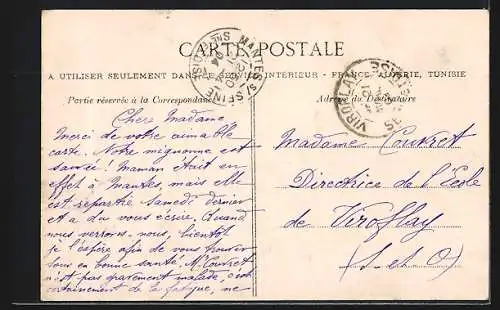 CARTE POSTALE
A UTILISER SEULEMENT DANS LE SERVICE INTÉRIEUR - FRANCE, ALGÉRIE, TUNISIE
Partie réservée à la Correspondance
Adresse du Destinataire
MANTES S/ SEINE
VIROFLAY
Chère Madame,
Merci de votre aimable
carte. Notre mignonne est
sauvée! Maman était en
effet à Mantes, mais elle
est repartie Samedi dernier
et a du vous écrire. Quand
nous verrons-nous, bientôt
je l'espère afin de vous trouver
tous en bonne santé. Mr Coutret
n'est pas gravement malade, c'est
certainement de la fatigue, ne
Madame Coutret
Directrice de l'École
de Viroflay
(S-et-O)